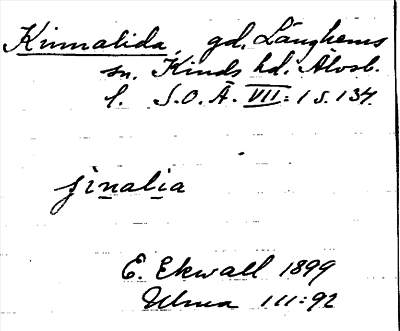 Kinnalida, gd, Länghems
sn. Kinds hd. Älvsb.
l. S.O.Ä. VII:1 s. 134.
jinalia
E. Ekwall 1899
Ulma 111:92